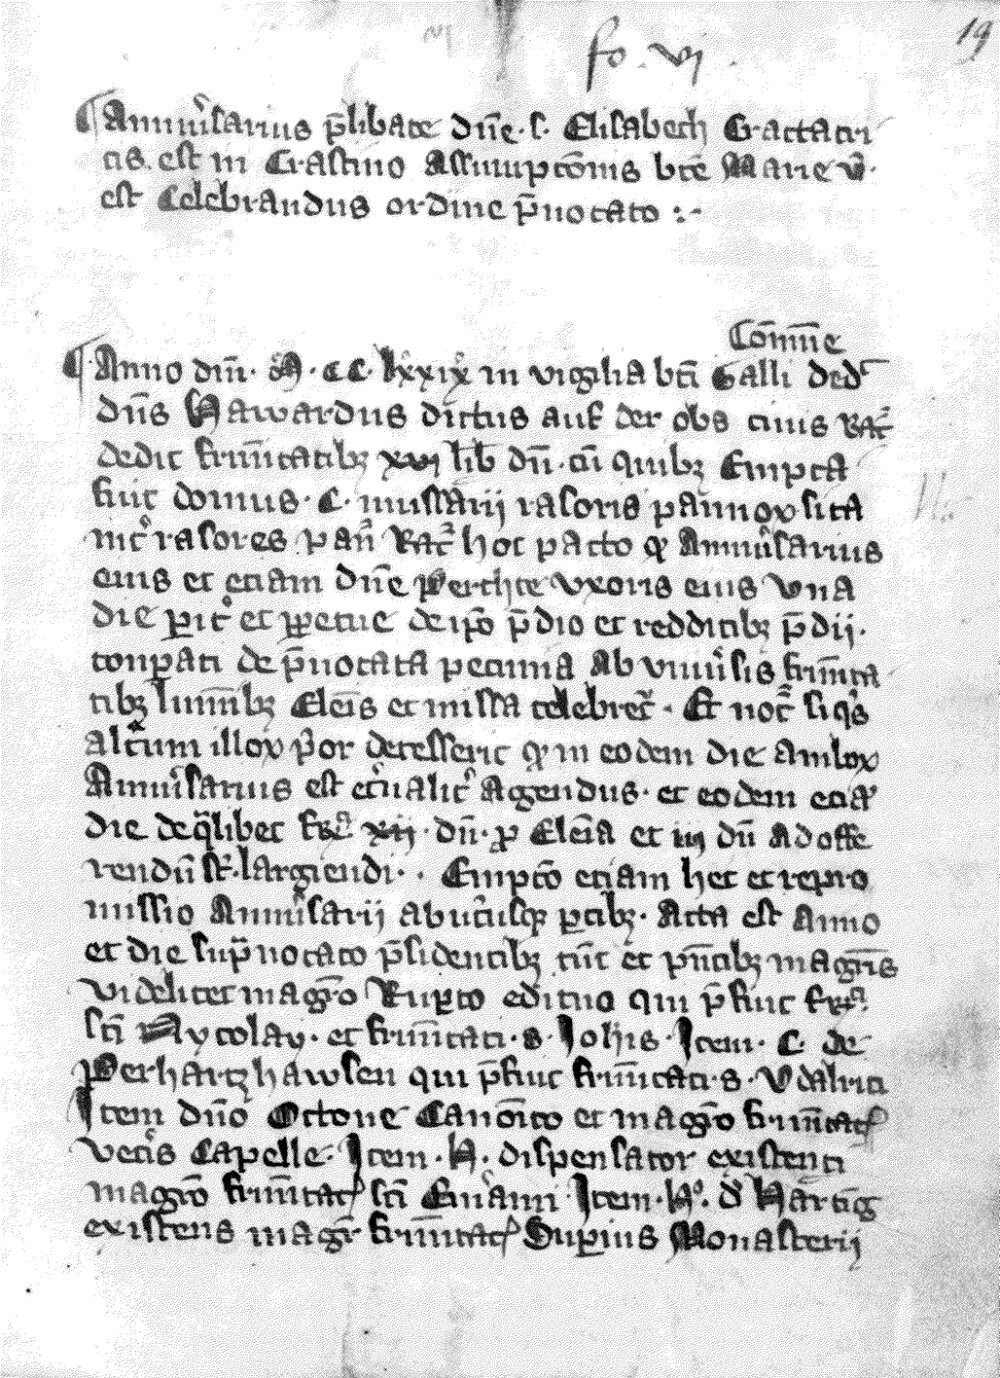 fo. vi.
19
¶ Anniu͛sarius p̄libate dn̄e .s. Elisabech Grattatri
cis. est in Crastino Assumptōnis bt̄e Marie v̄.
est Celebrandus ordine p̄notato :·-
Com̄ne
¶ Anno dn̄i. M̊. CC. lxxix̊ in vigilia bt̄i Galli ded᷑
dn̄s Hawardus dictus auf der obs ciuis Rat᷑
dedit frn̄itatibꝫ xvi lib dn̄. cū quibꝫ Empta
fuit domus. C. mussarij rasoris pannoꝝ sita
int͛ rasores pan̄ Rat᷑ hoc pacto ꝙ Anniu͛sarius
eius et etiam dn̄e Perchte vxoris eius vna
die ꝑit͛ et ꝑpetue de ip̄o p̄dio et redditibꝫ p̄dij.
conꝑati de p̄notata pecunia Ab vniu͛sis frn̄ita
tibꝫ lumı̄bꝫ Elēıs et missa celebret᷑. Et not᷑ si qͥs
alt͛um illoꝝ p͛or decesserit ꝙ in eodem die amboꝝ
Anniu͛sarius est eq͛nalit͛ Agendus. et eodem etiā
die de q̄libet fraͣ xij. dn̄. ꝓ Elēıa et iij dn̄ ad offe
rendū st᷑. largiendi. . Emptō etiam hec et repro
missio Anniu͛sarij ab ut͛usqꝫ ꝑtibꝫ. Acta est Anno
et die sup̄notato p̄sidentibꝫ tūc et p̄n̄tibꝫ magr̄is
videlicet magr̄o Ruꝑto edituo qui p̄fuit fraͣ.
sc̄i Nycolay. et frn̄itati. s. Joh̄is. Item. C. de
Perhartzhawsen qui p̄fuit frn̄itati. s. Vdalrici
Item dn̄o Ottone Canōıco et magr̄o frn̄itatꝭ
vet͛is Capelle. Item. H. dispensator existenti
magr̄o frn̄itatꝭ sc̄i Em͛ami. Item. H̊. d͛ Hartīg
existens magr̄ frn̄itatꝭ Suꝑius Monasterij